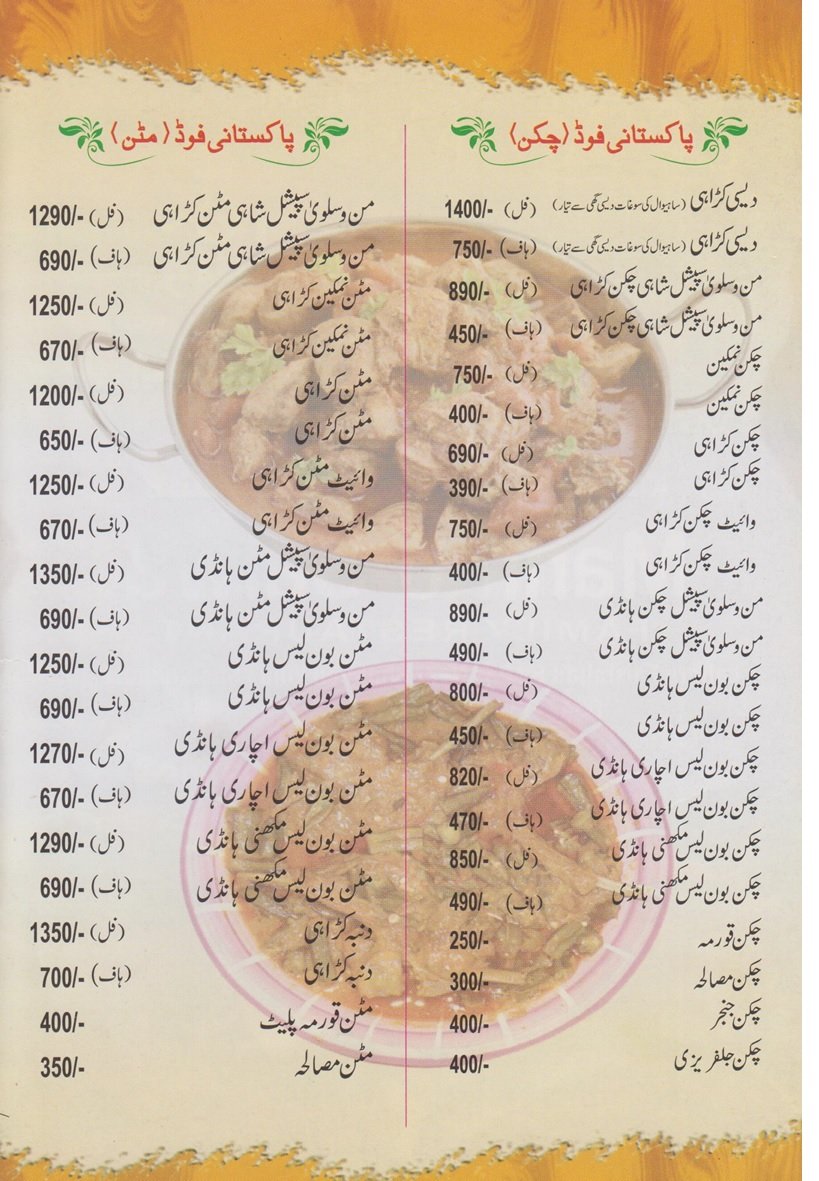 پاکستانی فوڈ (چکن)
دیسی کڑاہی (ساہیوال کی سوغات دیسی گھی سے تیار) (فل) 1400/-
دیسی کڑاہی (ساہیوال کی سوغات دیسی گھی سے تیار) (ہاف) 750/-
من و سلویٰ سپیشل شاہی چکن کڑاہی (فل) 890/-
من و سلویٰ سپیشل شاہی چکن کڑاہی (ہاف) 450/-
چکن نمکین (فل) 750/-
چکن نمکین (ہاف) 400/-
چکن کڑاہی (فل) 690/-
چکن کڑاہی (ہاف) 390/-
وائیٹ چکن کڑاہی (فل) 750/-
وائیٹ چکن کڑاہی (ہاف) 400/-
من و سلویٰ سپیشل چکن ہانڈی (فل) 890/-
من و سلویٰ سپیشل چکن ہانڈی (ہاف) 490/-
چکن بون لیس ہانڈی (فل) 800/-
چکن بون لیس ہانڈی (ہاف) 450/-
چکن بون لیس اچاری ہانڈی (فل) 820/-
چکن بون لیس اچاری ہانڈی (ہاف) 470/-
چکن بون لیس مکھنی ہانڈی (فل) 850/-
چکن بون لیس مکھنی ہانڈی (ہاف) 490/-
چکن قورمہ 250/-
چکن مصالحہ 300/-
چکن جنجر 400/-
چکن جلفریزی 400/-
پاکستانی فوڈ (مٹن)
من و سلویٰ سپیشل شاہی مٹن کڑاہی (فل) 1290/-
من و سلویٰ سپیشل شاہی مٹن کڑاہی (ہاف) 690/-
مٹن نمکین کڑاہی (فل) 1250/-
مٹن نمکین کڑاہی (ہاف) 670/-
مٹن کڑاہی (فل) 1200/-
مٹن کڑاہی (ہاف) 650/-
وائیٹ مٹن کڑاہی (فل) 1250/-
وائیٹ مٹن کڑاہی (ہاف) 670/-
من و سلویٰ سپیشل مٹن ہانڈی (فل) 1350/-
من و سلویٰ سپیشل مٹن ہانڈی (ہاف) 690/-
مٹن بون لیس ہانڈی (فل) 1250/-
مٹن بون لیس ہانڈی (ہاف) 690/-
مٹن بون لیس اچاری ہانڈی (فل) 1270/-
مٹن بون لیس اچاری ہانڈی (ہاف) 670/-
مٹن بون لیس مکھنی ہانڈی (فل) 1290/-
مٹن بون لیس مکھنی ہانڈی (ہاف) 690/-
دنبہ کڑاہی (فل) 1350/-
دنبہ کڑاہی (ہاف) 700/-
مٹن قورمہ پلیٹ 400/-
مٹن مصالحہ 350/-